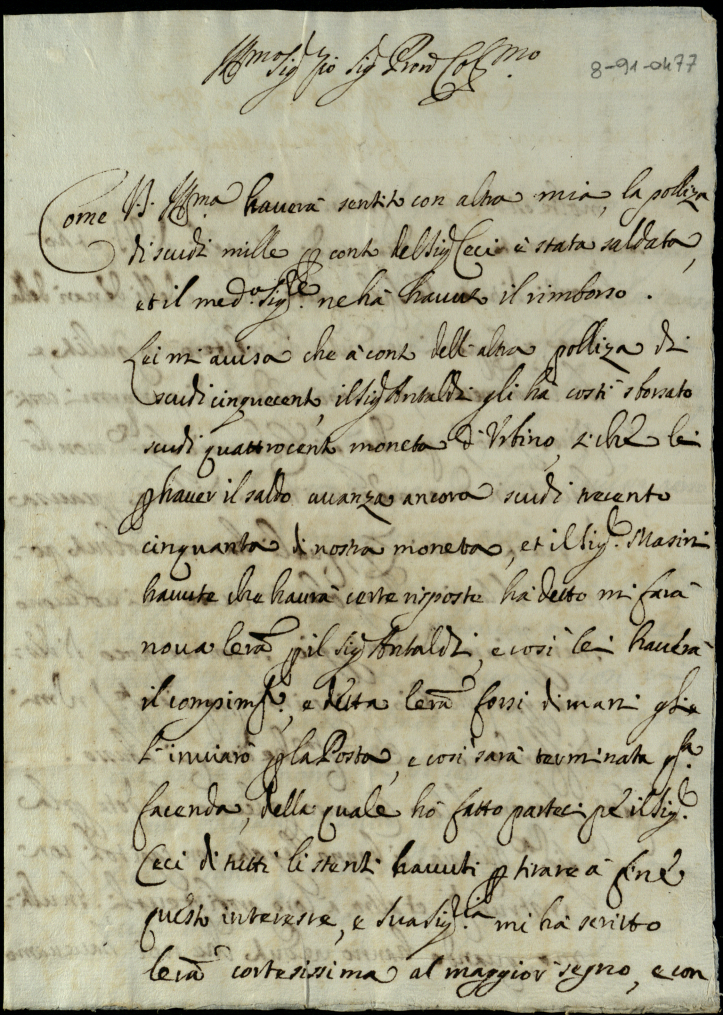 Ill.mo Sig. Zio Sig. Pron Col.mo
8-91-0477
Come V.S. Ill.ma haverà sentito con altra mia, la polliza
di scudi mille p conto del Sig. Ceci è stata saldata,
et il med.o Sig.re ne hà havuto il rimborso.
Lei mi avisa che à conto dell'altra polliza di
scudi cinquecento, il Sig. Antaldi gli hà costì sborsato
scudi quattrocento moneta d'Urbino, e che lei
p haver il saldo avanza ancora scudi trecento
cinquanta di nostra moneta, et il Sig. Masini
havute che haurà certe risposte hà detto mi farà
nova lerã p il Sig. Antaldi, e così lei haverà
il compim.to, e detta lerã forsi dimani gli
l'inviarò p la Posta, e così sarà terminata q.sta
facenda, della quale hò fatto partecipe il Sig.
Ceci di tutti li stenti havuti p tirare à fine
questo interesse, e Sua Sig.ria mi hà scritto
lerã cortesissima al maggior segno, e con